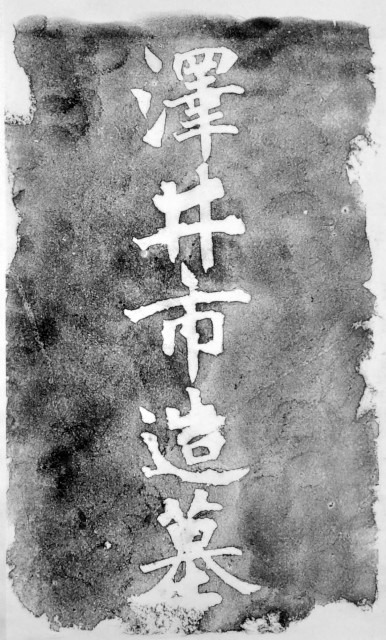 澤井市造墓